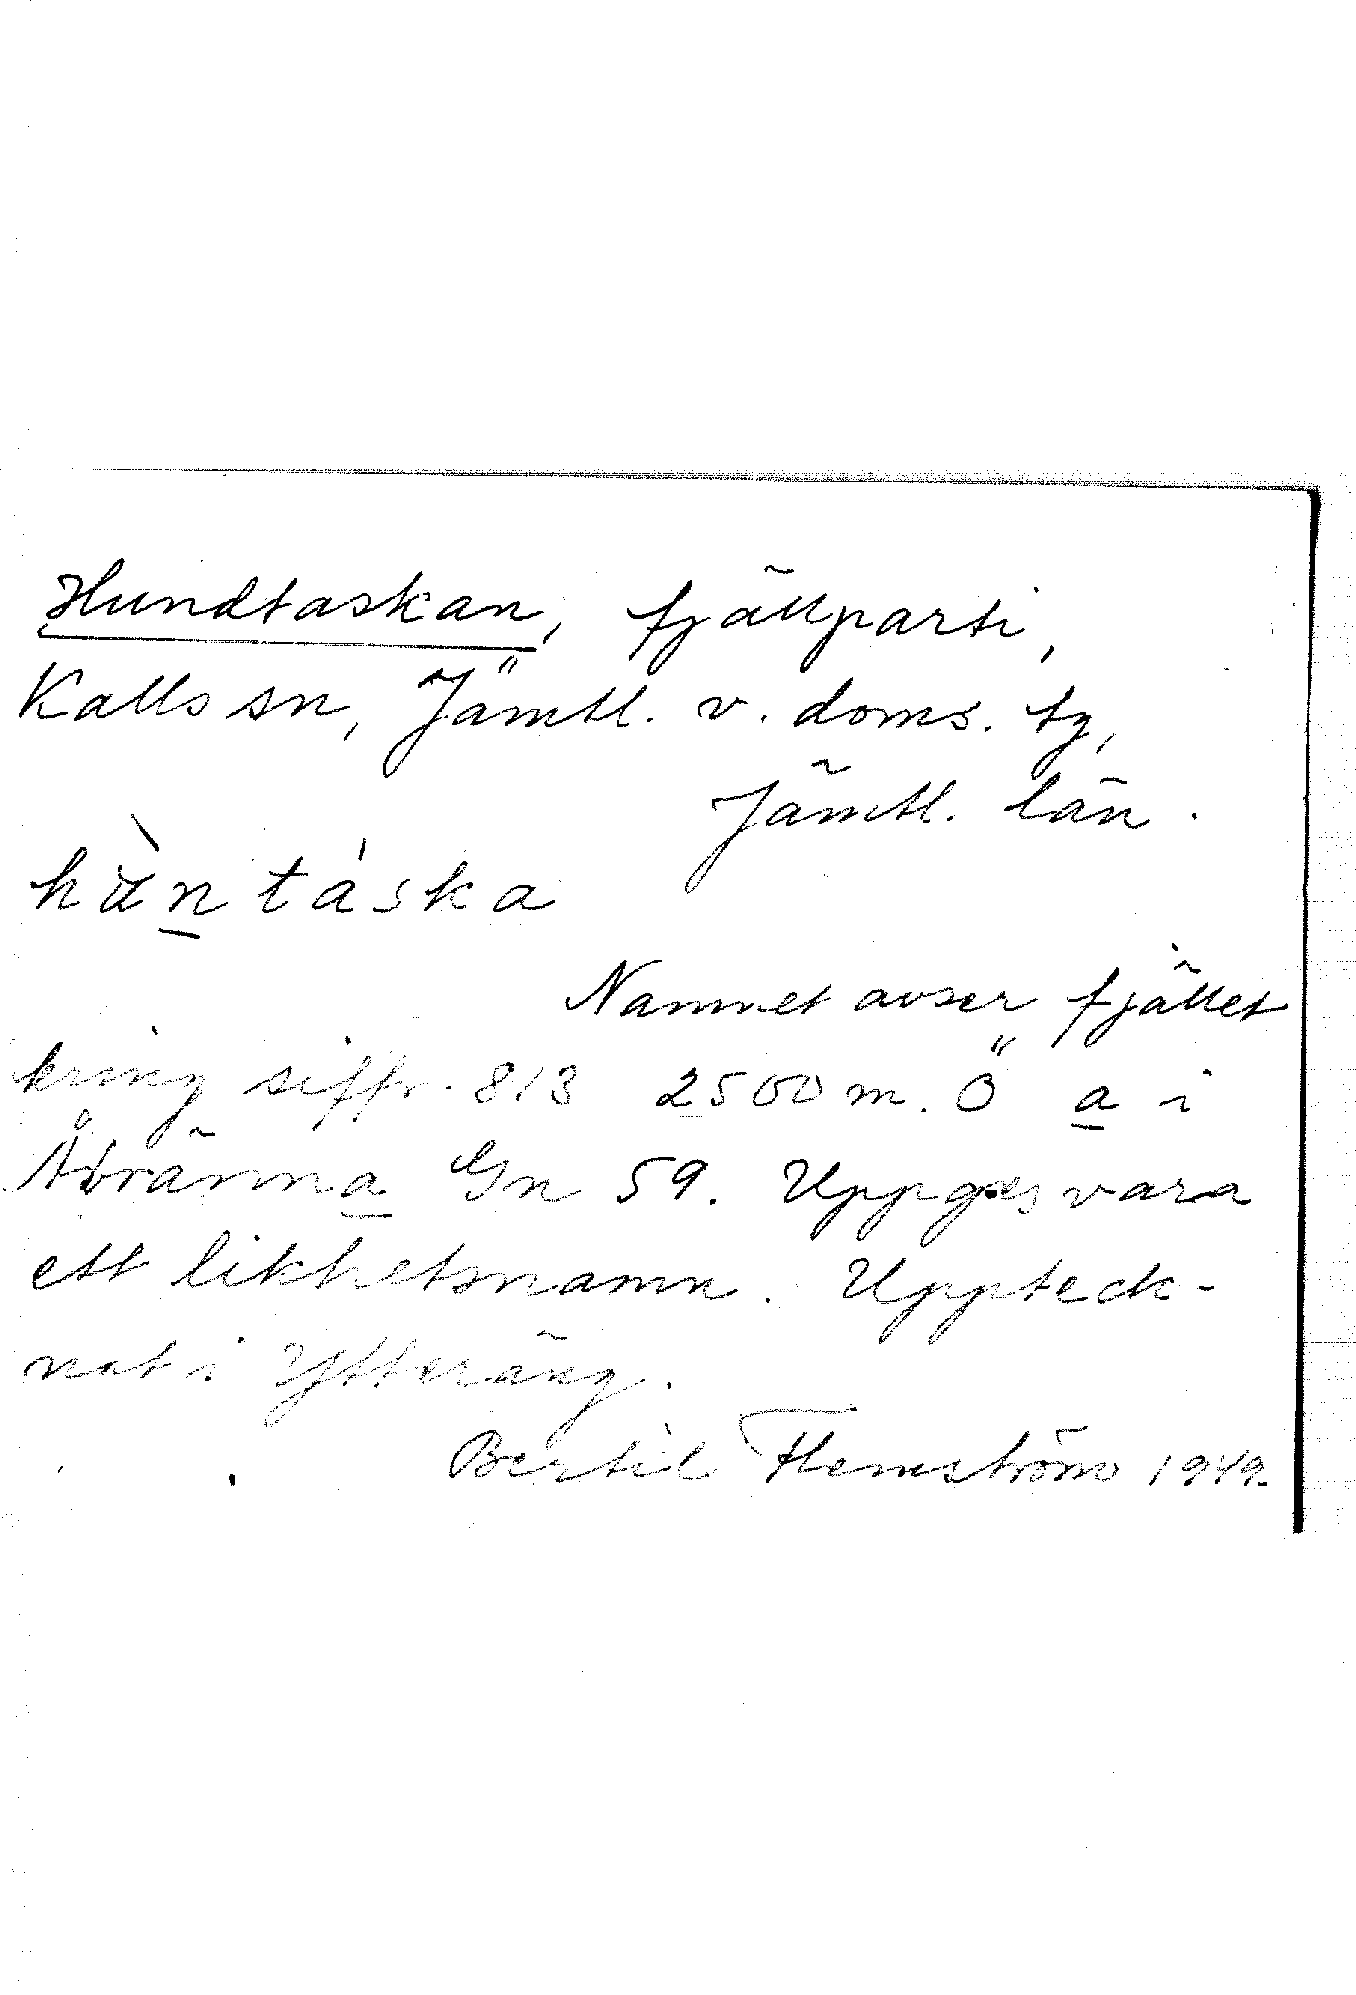 Hundtaskan, fjällparti,
Kalls sn, Jämtl. v. doms. tg,
Jämtl. län.
hàn táska
Namnet avser fjället
kring siffr. 813 2500 m. Ö a i
Åbränna Gn 59. Uppges vara
ett likhetsnamn. Uppteck-
nat i Ytteräng.
Bertil Flemström 1949.